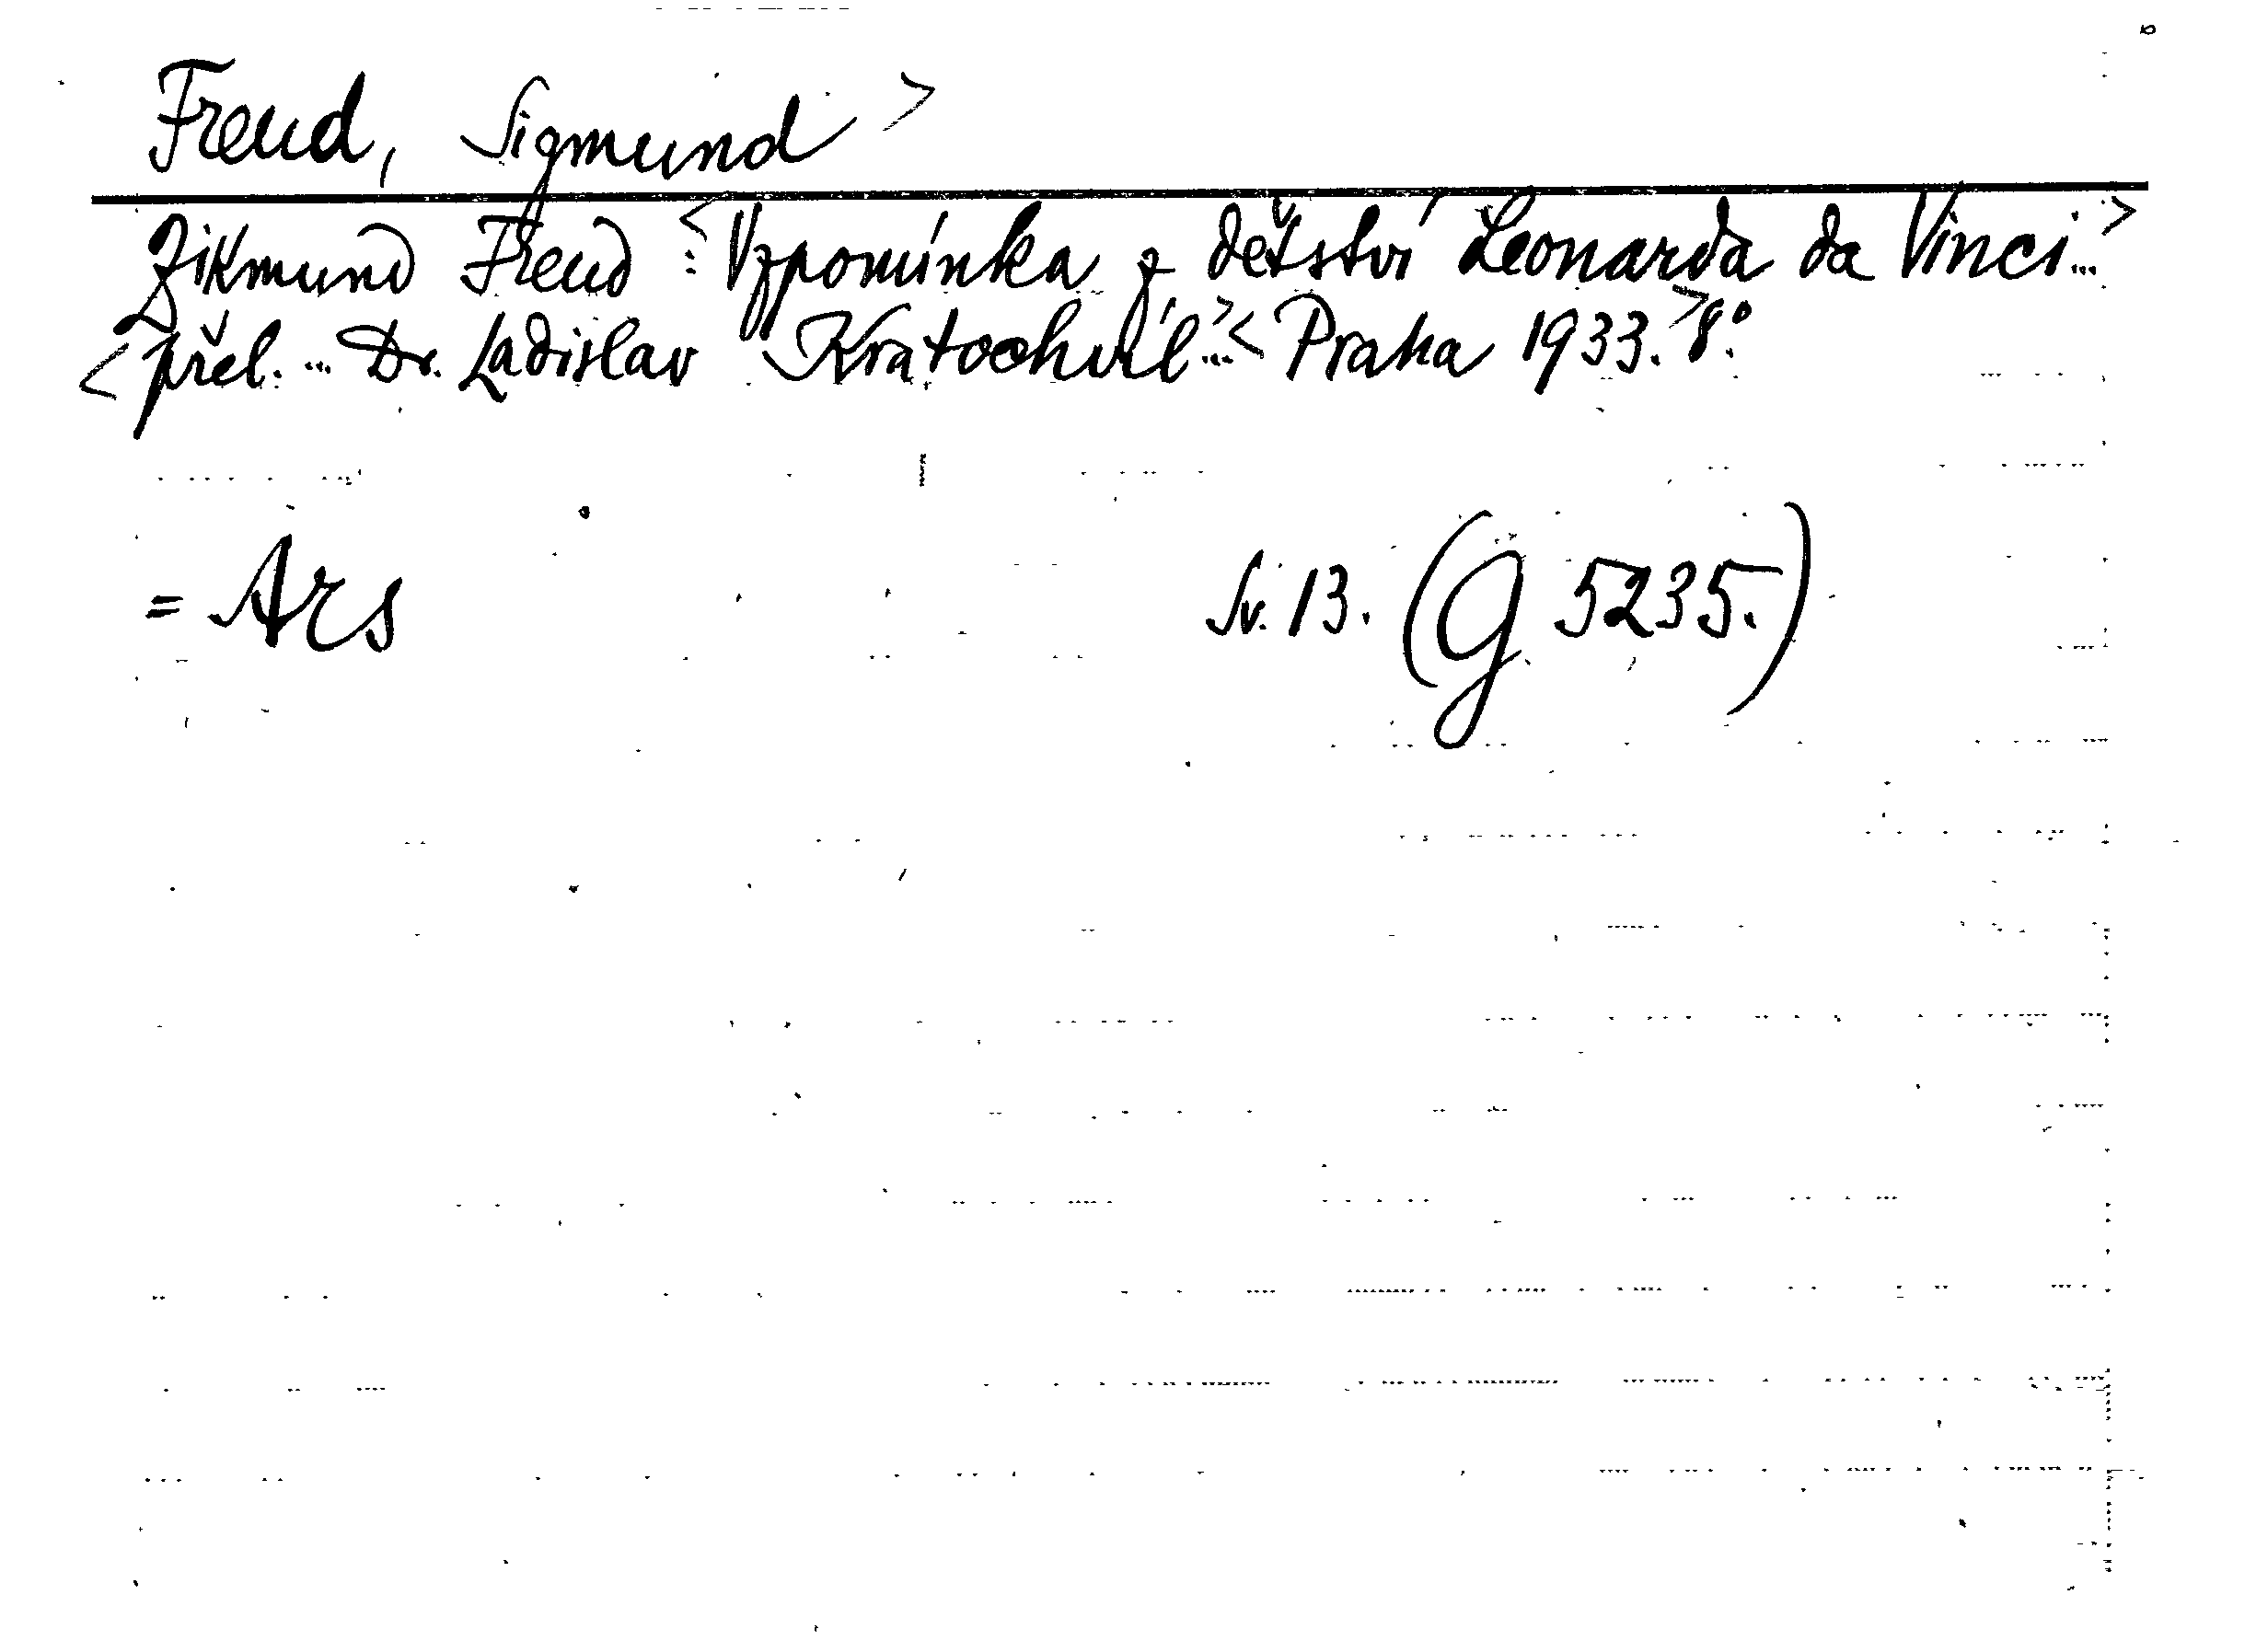 Freud, Sigmund >
Zikmund Freud : <Vzpomínka z dětství Leonarda da Vinci...>
<přel. ... Dr. Ladislav Kratochvíl...>< Praha 1933.> 8.°
= Ars Sv. 13. (G 5235.)